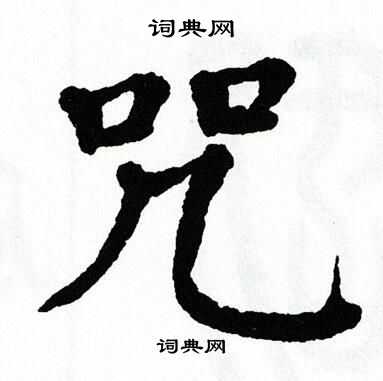 词典网
咒
词典网